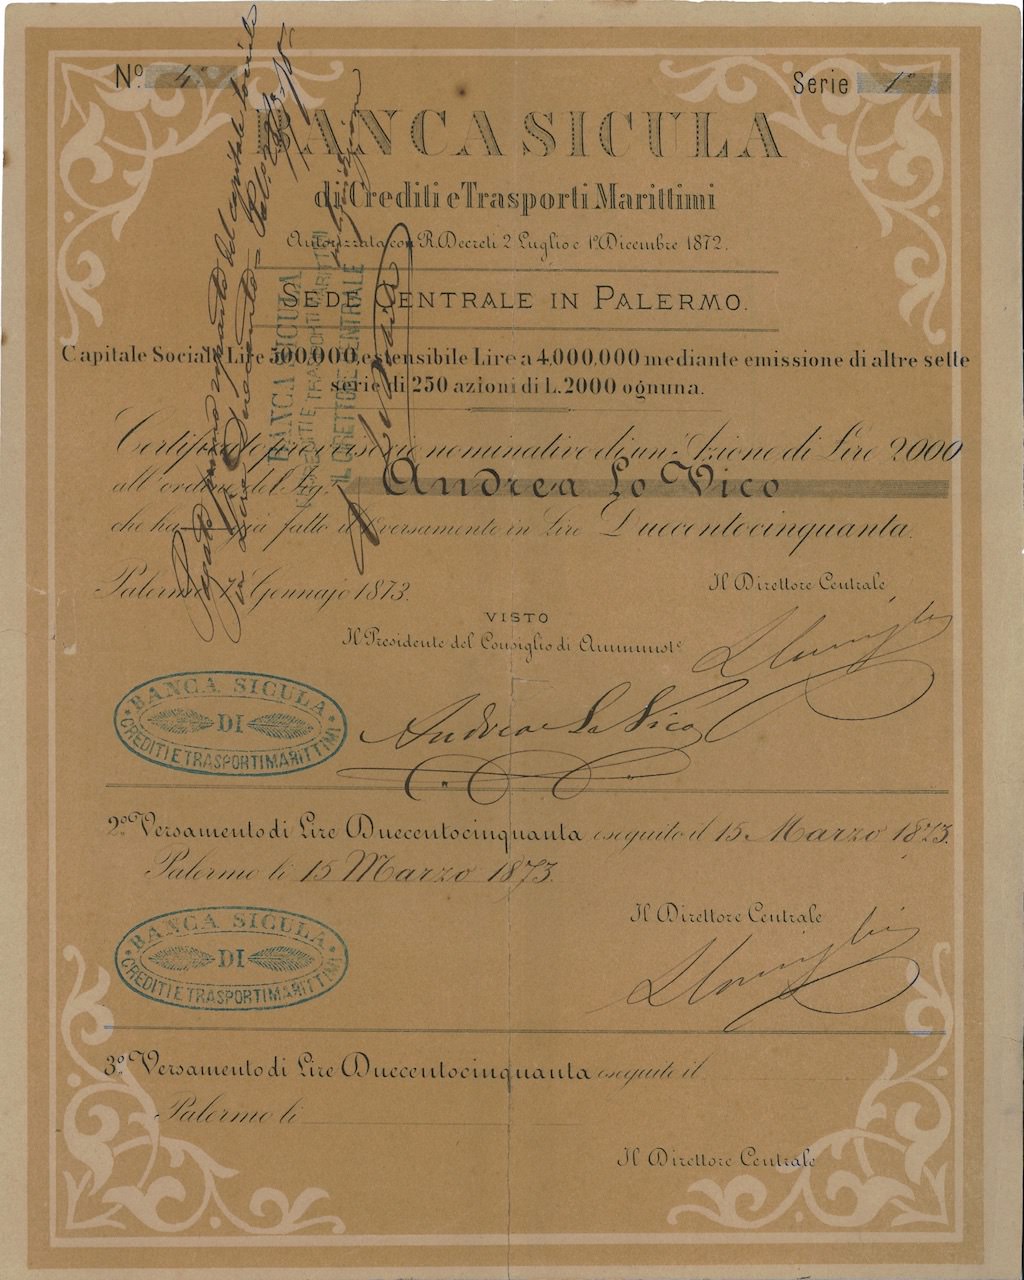 No. 4° Serie 1°
BANCA SICULA
di Crediti e Trasporti Marittimi
Autorizzata con R. Decreti 2 Luglio e 1° Dicembre 1872.
SEDE CENTRALE IN PALERMO.
Capitale Sociale Lire 500,000, estensibile Lire a 4,000,000 mediante emissione di altre sette
serie di 250 azioni di L. 2000 ognuna.
Certificato provvisorio nominativo di un' Azione di Lire 2000
all' ordine del Sig. Andrea Lo Vico
che ha già fatto il versamento in Lire Duecentocinquanta.
Palermo 7 Gennajo 1873. Il Direttore Centrale
VISTO
Il Presidente del Consiglio di Amminist.e
Andrea Lo Vico
BANCA SICULA
DI
CREDITI E TRASPORTI MARITTIMI
2.° Versamento di Lire Duecentocinquanta eseguito il 15 Marzo 1873.
Palermo li 15 Marzo 1873.
Il Direttore Centrale
BANCA SICULA
DI
CREDITI E TRASPORTI MARITTIMI
3.° Versamento di Lire Duecentocinquanta eseguito il
Palermo li
Il Direttore Centrale
del capitale sociale
in Lire Duecento
BANCA SICULA
E TRASPORTI MARITTIMI
IL DIRETTORE CENTRALE